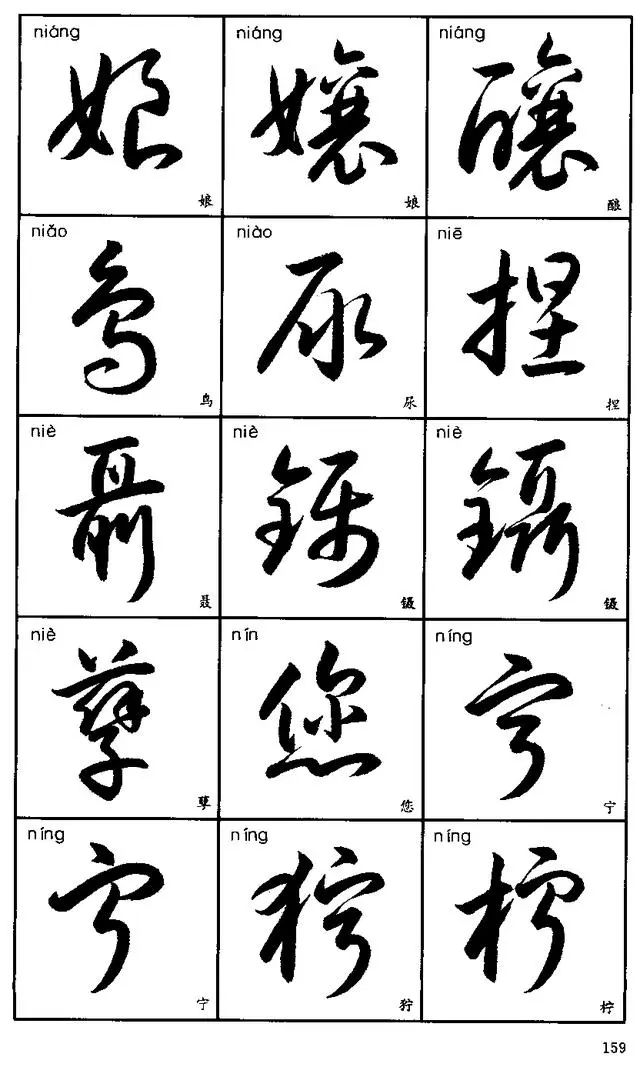 niáng niáng niáng
娘 孃 釀
娘 娘 酿
niǎo niào niē
鸟 尿 捏
鸟 尿 捏
niè niè niè
聶 鑷
聂 镊 镊
niè nín níng
孽 您 宁
孽 您 宁
níng níng níng
宁 狞 柠
宁 狞 柠
159